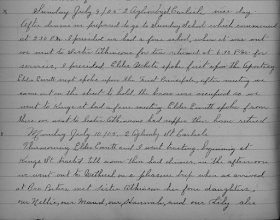 Sunday July 9/05. 2 Aglionby St Carlisle nice day
After dinner we prepared to go to Sunday School which commenced
at 2.30 PM I presided had a fair school, when it was out
we went to Sister Atkinsons for tea returned at 6.00 PM for
service, I presided Elder White spoke first upon the Apostasy
Elder Covett next spoke upon the after meeting we
came out in the street to hold the home was occupied so we
went to Kings st had a fair meeting Elder Covett spoke from
there we went to Sister Atkinsons had supper then home retired
Monday July 10/05. 2 Aglionby St Carlisle
This morning Elder Covett and I went tracting beginning at
Kings St tracted till noon then had dinner in the afternoon
we went out to Wetheral on a pleasure trip when we arrived
at Bro met Sister Atkinson her four daughters,
one Nellie, one Maud, one Hannah, and one Lily also